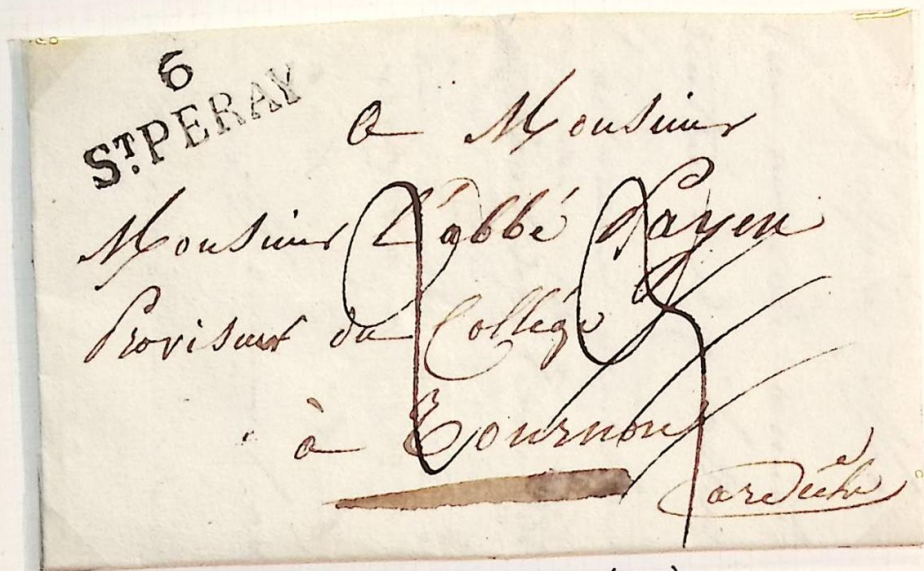 6
ST. PERAY
a Monsieur
Monsieur L'abbé Payen
Proviseur du Collége
à Tournon
ardeche